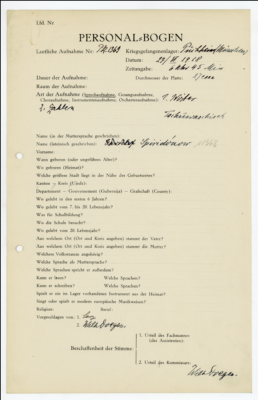 Lfd. Nr
PERSONAL-BOGEN
Lautliche Aufnahme Nr.: PK Kriegsgefangenenlager:
Datum: 1918
Zeitangabe: 6 Uhr 45 Min
Dauer der Aufnahme: Durchmesser der Platte:
Raum der Aufnahme:
Art der Aufnahme (Sprechaufnahme, Gesangsaufnahme,
Choraufnahme, Instrumentenaufnahme, Orchesteraufnahme):
Name (in der Muttersprache geschrieben):
Name (lateinisch geschrieben): Spiridonow
Vorname:
Wann geboren (oder ungefähres Alter)?
Wo geboren (Heimat)?
Welche größere Stadt liegt in der Nähe des Geburtsortes?
Kanton — Kreis (Ujedz):
Department — Gouvernement (Gubernija) — Grafschaft (County):
Wo gelebt in den ersten 6 Jahren?
Wo gelebt vom 7. bis 20. Lebensjahr?
Was für Schulbildung?
Wo die Schule besucht?
Wo gelebt vom 20. Lebensjahr?
Aus welchem Ort (Ort und Kreis angeben) stammt der Vater?
Aus welchem Ort (Ort und Kreis angeben) stammt die Mutter?
Welchem Volksstamm angehörig?
Welche Sprache als Muttersprache?
Welche Sprachen spricht er außerdem?
Kann er lesen? Welche Sprachen?
Kann er schreiben? Welche Sprachen?
Spielt er ein im Lager vorhandenes Instrument aus der Heimat?
Singt oder spielt er moderne europäische Musikweisen?
Religion: Beruf:
Vorgeschlagen von: 1.
2. Wilh. Doegen
Beschaffenheit der Stimme:
1. Urteil des Fachmannes:
(des Assistenten):
2. Urteil des Kommissars:
Wilh. Doegen